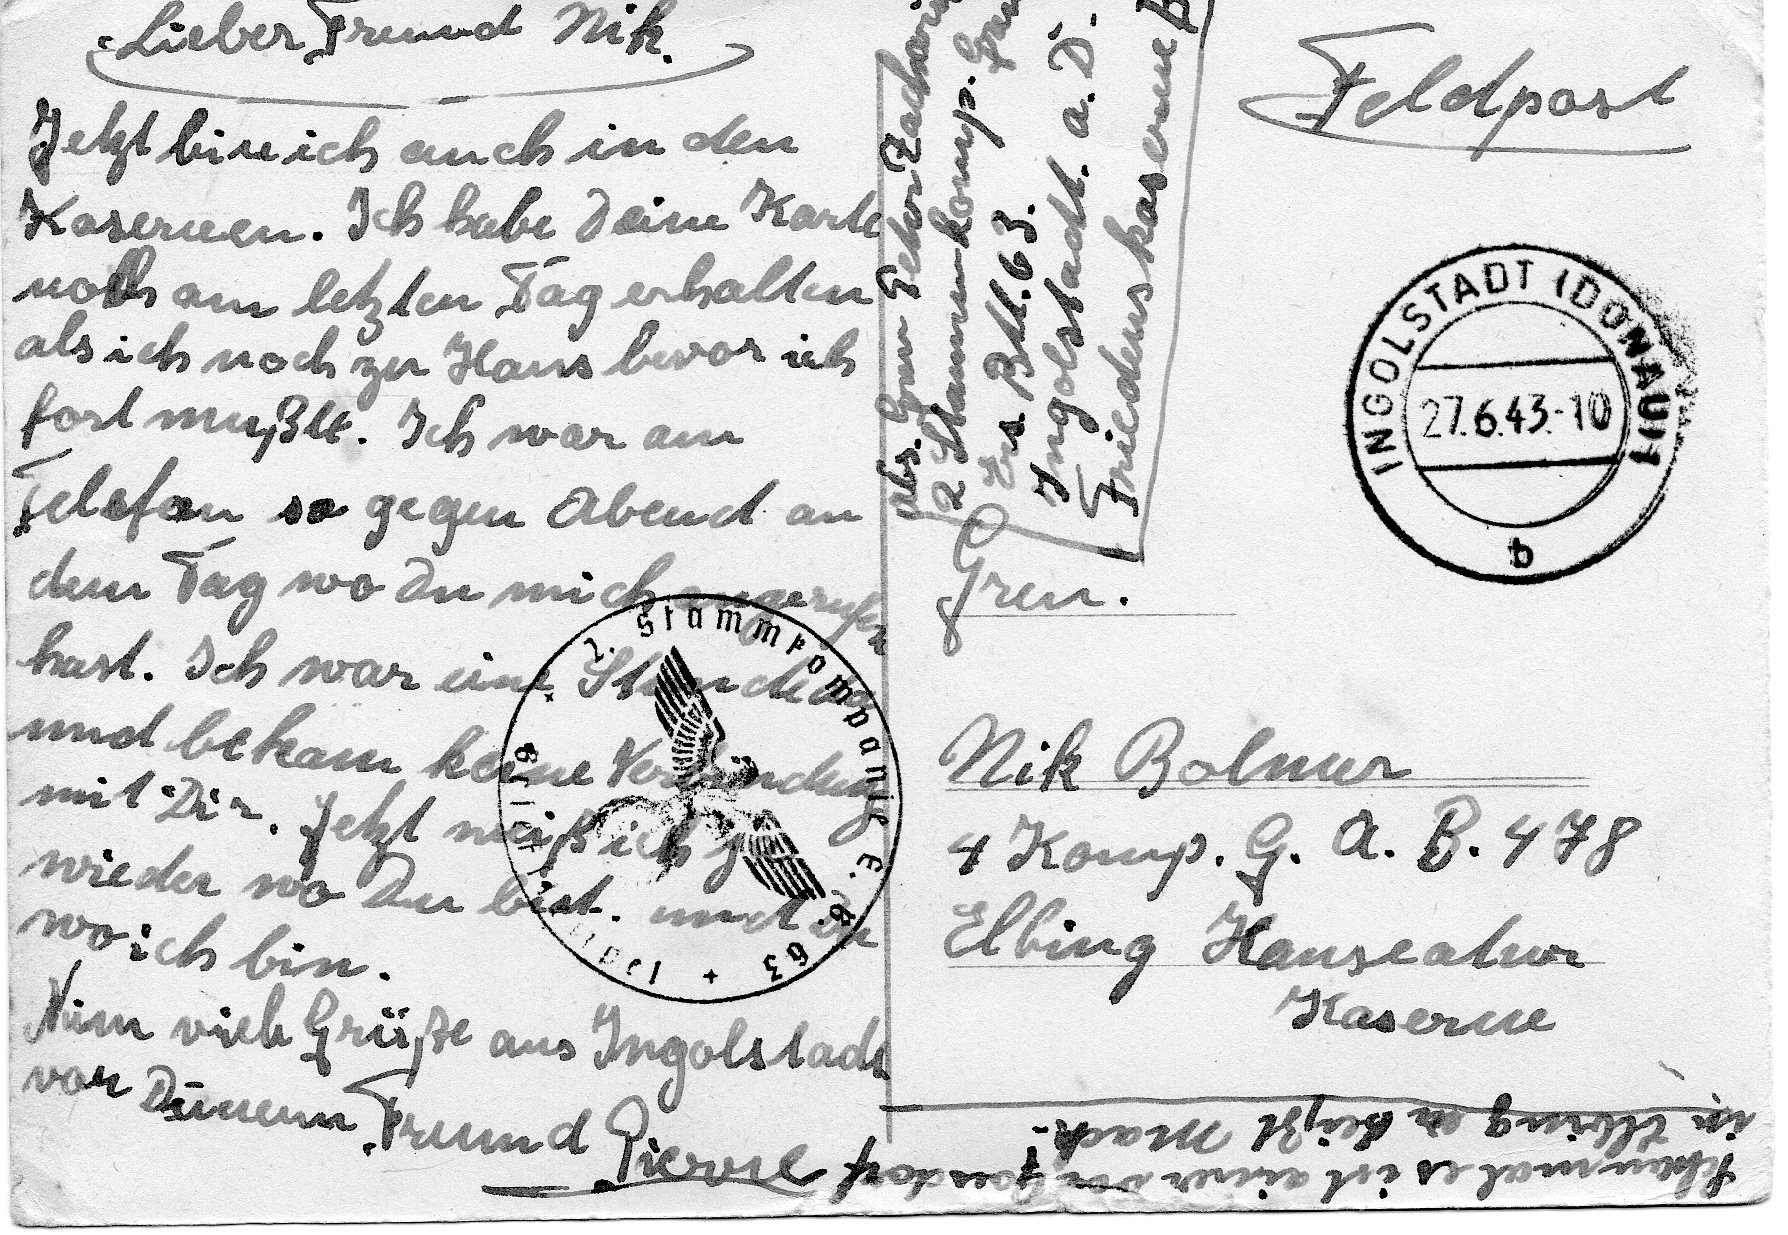 Lieber Freund Nik.
Jetzt bin ich auch in den
Kasernen. Ich habe Deine Karte
noch am letzten Tag erhalten
als ich noch zu Haus bevor ich
fort mußte. Ich war am
Telefon so gegen Abend an
dem Tag wo Du mich angerufen
hast. Ich war eine Stunde da
und bekam keine Verbindung
mit Dir. Jetzt weiß ich
wieder wo Du bist. und Du
wo ich bin.
Nim viele Grüße aus Ingolstadt
von Deinem Freund Pierre
Abs. Gren
2 Stammkomp. Gren
Ers. Btl. 63.
Ingolstadt. a. D.
Friedenskaserne B
Feldpost
INGOLSTADT (DONAU)
27.6.43.-10
b
Gren.
Nik Bolmer
4 Komp. G. A. B. 478
Elbing Hanseatur
Kaserne
2. Stammkompanie G. E. B. 63
Schau mal es ist einer von
in Elbing er heißt Mack.